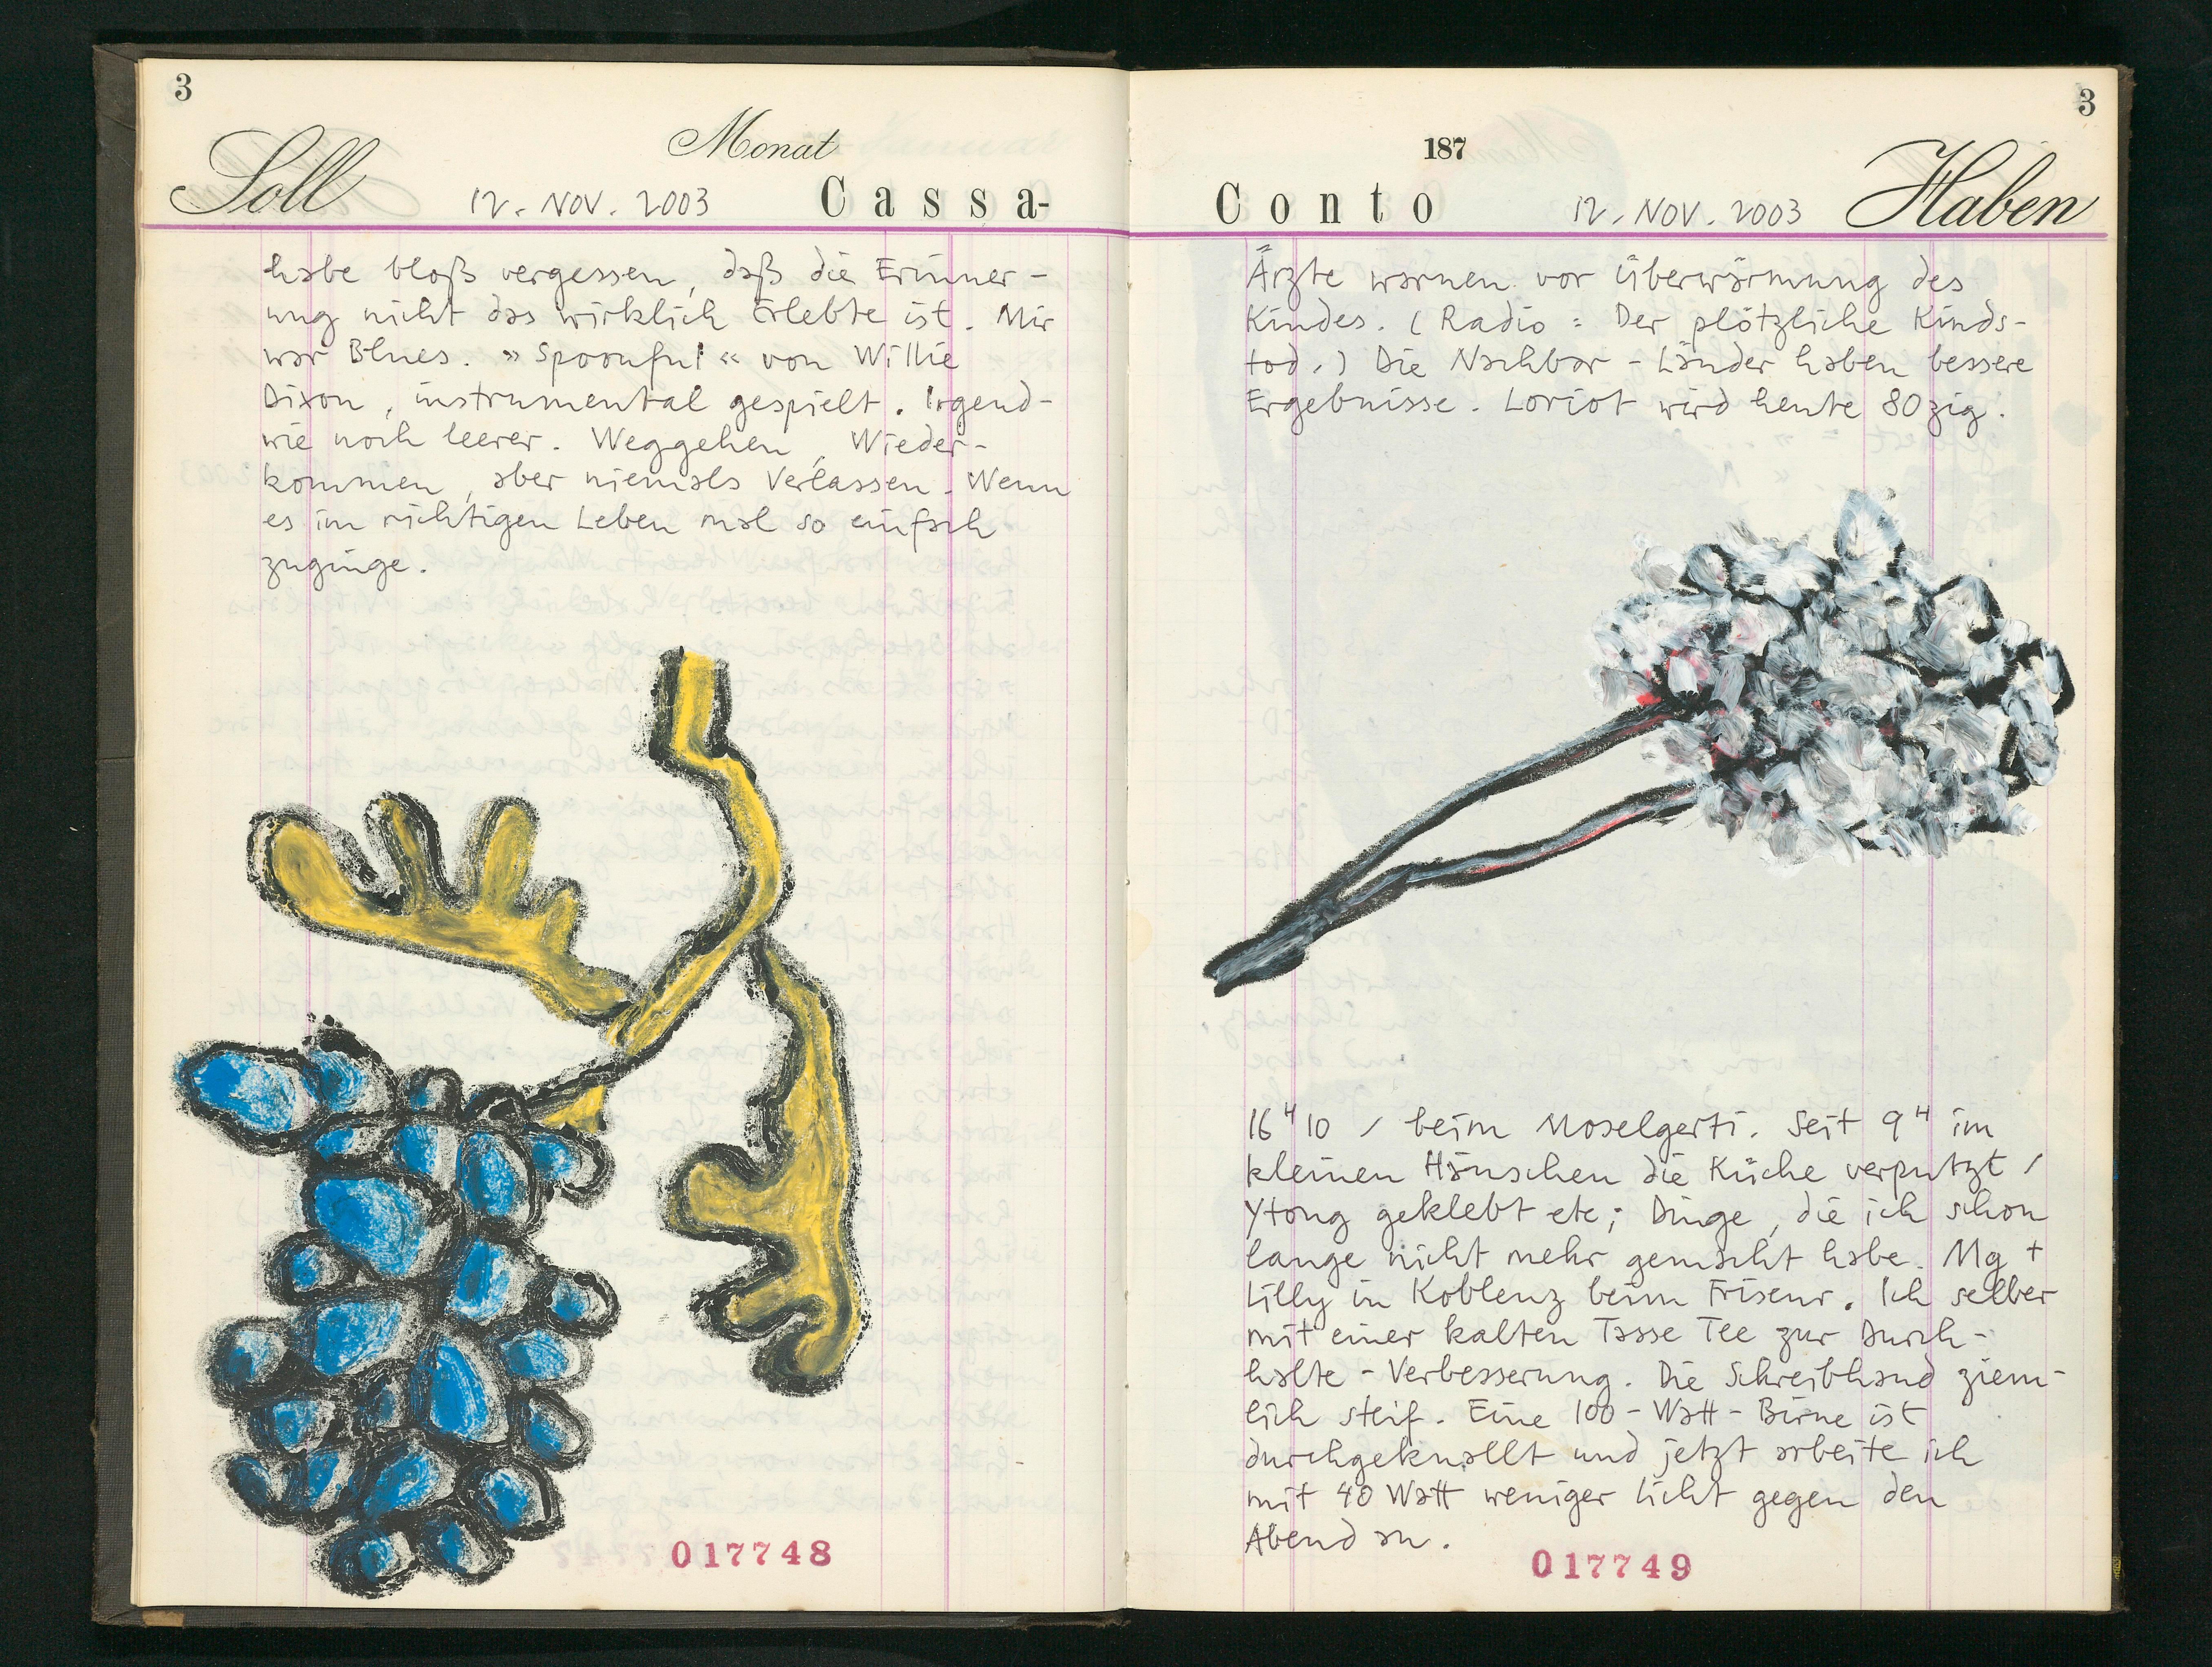 3
Soll
Monat
12. NOV. 2003
Cassa-
habe bloß vergessen, daß die Erinner-
ung nicht das wirklich Erlebte ist. Mir
war Blues. »Spoonful« von Willie
Dixon, instrumental gespielt. Irgend-
wie noch leerer. Weggehen, Wieder-
kommen, aber niemals Verlassen. Wenn
es im richtigen Leben mal so einfach
zuginge.
017748
3
187
Conto
12. NOV. 2003
Haben
Ärzte warnen vor Überwärmung des
Kindes. (Radio: Der plötzliche Kinds-
tod.) Die Nachbar-Länder haben bessere
Ergebnisse. Loriot wird heute 80zig.
16H10 / beim Moselgerti. Seit 9H im
kleinen Häuschen die Küche verputzt /
Ytong geklebt etc; Dinge, die ich schon
lange nicht mehr gemacht habe. Mg +
Lilly in Koblenz beim Friseur. Ich selber
mit einer kalten Tasse Tee zur Durch-
halte-Verbesserung. Die Schreibhand ziem-
lich steif. Eine 100-Watt-Birne ist
durchgeknallt und jetzt arbeite ich
mit 40 Watt weniger Licht gegen den
Abend an.
017749